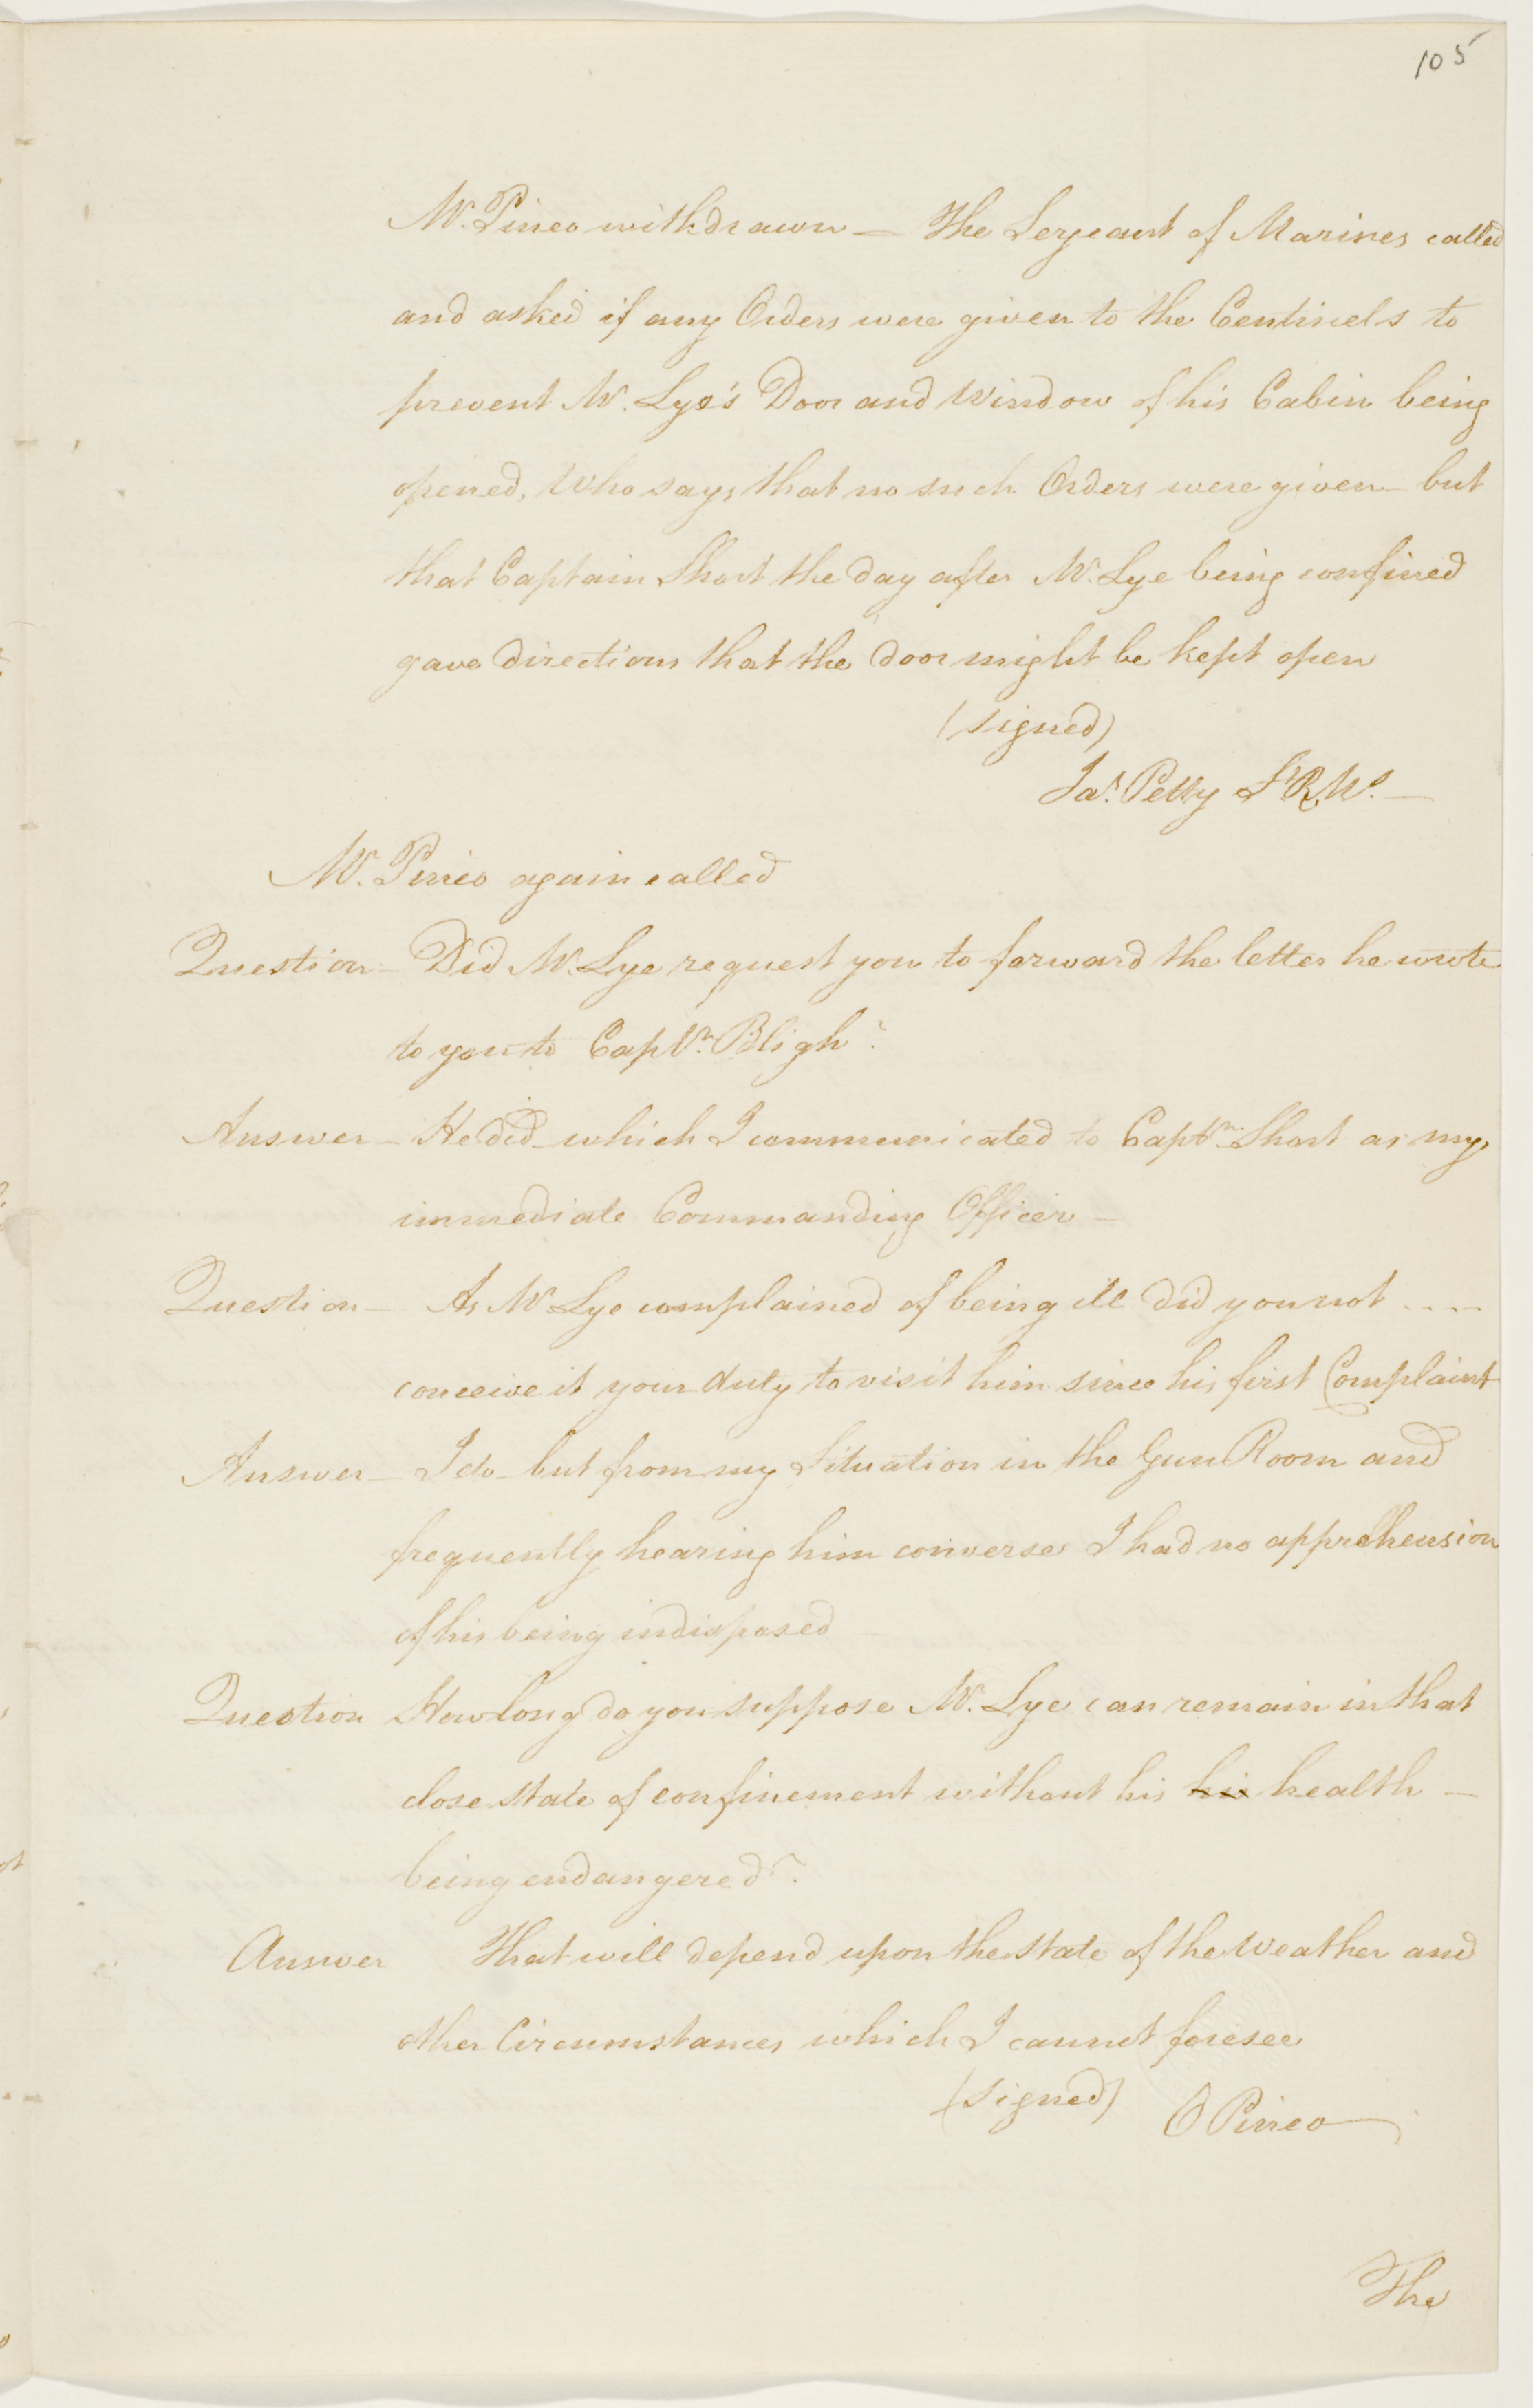 105
Mr. Pineo withdrawn — The Serjeant of Marines called
and asked if any Orders were given to the Centinels to
prevent Mr. Lye's Door and Window of his Cabin being
opened, Who says that no such Orders were given — but
that Captain Short the day after Mr. Lye being confined
gave directions that the door might be kept open
(signed)
Jas. Petty St R. Ms. —
Mr. Pineo again called
Question — Did Mr. Lye request you to forward the letter he wrote
to you to Captn. Bligh?
Answer — He did — which I communicated to Captn. Short as my
immediate Commanding Officer —
Question — As Mr Lye complained of being ill did you not ....
conceive it your duty to visit him since his first Complaint
Answer — I do — but from my Situation in the Gun Room and
frequently hearing him converse I had no apprehension
of his being indisposed
Question How long do you suppose Mr. Lye can remain in that
close state of confinement without his his health —
being endangered?
Answer That will depend upon the state of the Weather and
other Circumstances which I cannot foresee
(signed) O Pineo
The